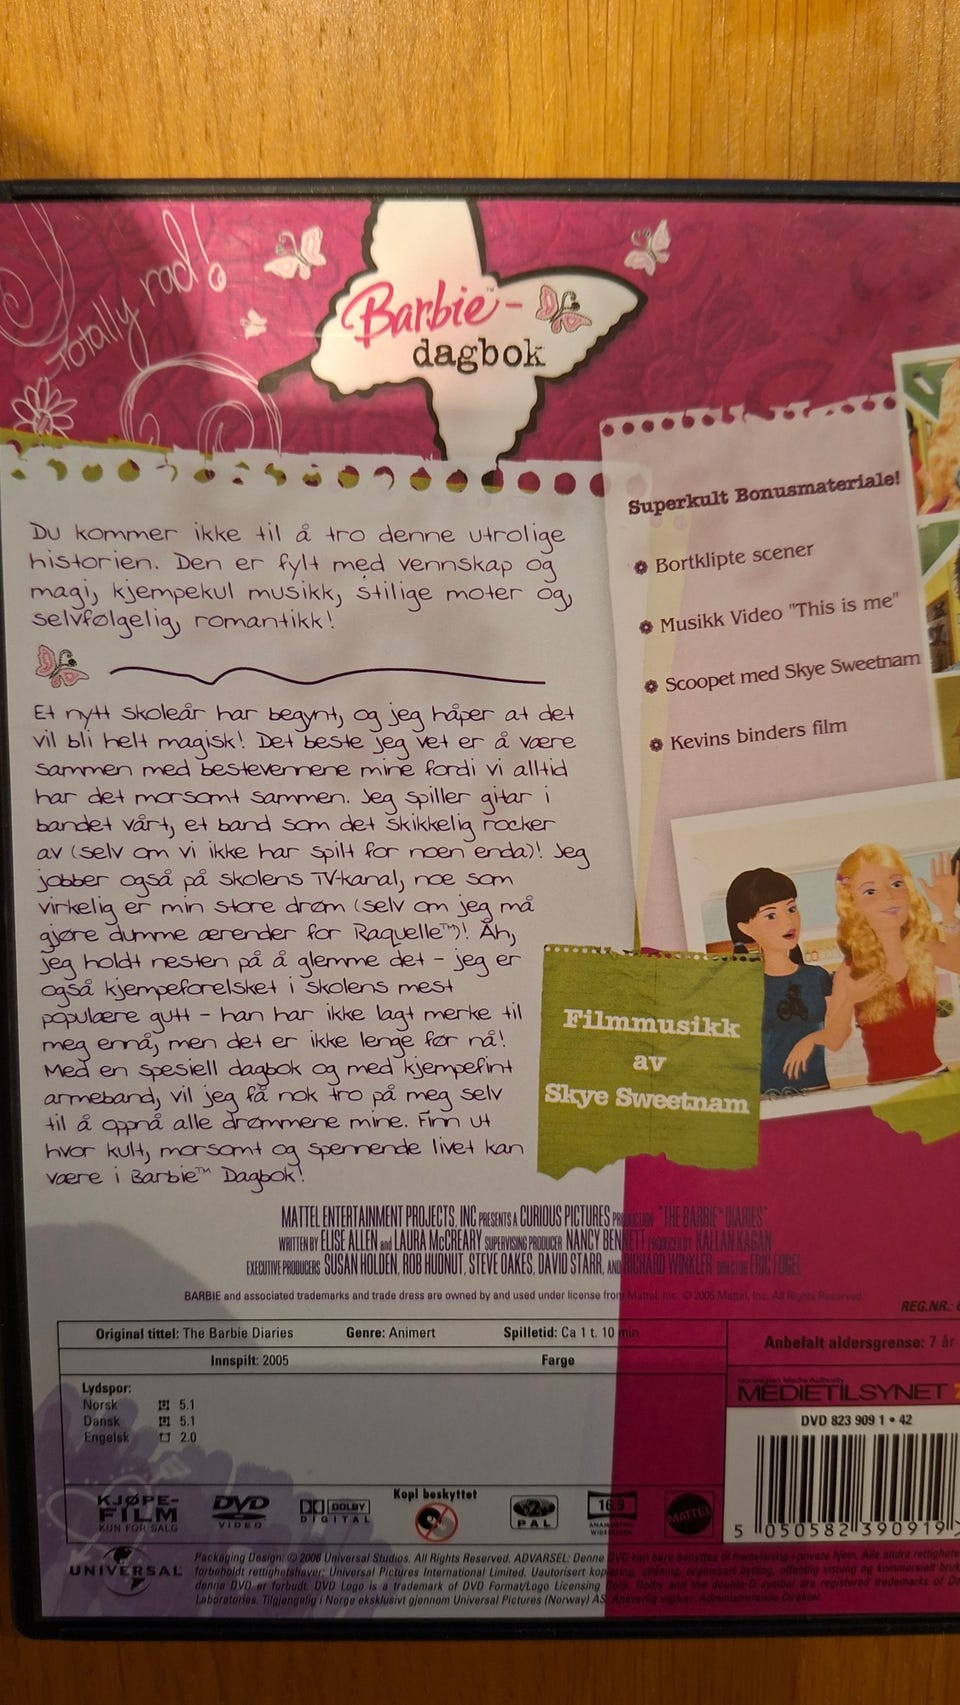 Totally rad!
Barbie™-
dagbok
Du kommer ikke til å tro denne utrolige
historien. Den er fylt med vennskap og
magi, kjempekul musikk, stilige moter og,
selvfølgelig, romantikk!
Et nytt skoleår har begynt, og jeg håper at det
vil bli helt magisk! Det beste jeg vet er å være
sammen med bestevennene mine fordi vi alltid
har det morsomt sammen. Jeg spiller gitar i
bandet vårt, et band som det skikkelig rocker
av (selv om vi ikke har spilt for noen enda)! Jeg
jobber også på skolens TV-kanal, noe som
virkelig er min store drøm (selv om jeg må
gjøre dumme ærender for Raquelle™)! Åh,
jeg holdt nesten på å glemme det - jeg er
også kjempeforelsket i skolens mest
populære gutt - han har ikke lagt merke til
meg ennå, men det er ikke lenge før nå!
Med en spesiell dagbok og med kjempefint
armebånd, vil jeg få nok tro på meg selv
til å oppnå alle drømmene mine. Finn ut
hvor kult, morsomt og spennende livet kan
være i Barbie™ Dagbok!
Superkult Bonusmateriale!
Bortklipte scener
Musikk Video "This is me"
Scoopet med Skye Sweetnam
Kevins binders film
Filmmusikk
av
Skye Sweetnam
MATTEL ENTERTAINMENT PROJECTS, INC PRESENTS A CURIOUS PICTURES PRODUCTION "THE BARBIE™ DIARIES"
WRITTEN BY ELISE ALLEN and LAURA McCREARY SUPERVISING PRODUCER NANCY BENNETT PRODUCED BY KALLAN KAGAN
EXECUTIVE PRODUCERS SUSAN HOLDEN, ROB HUDNUT, STEVE OAKES, DAVID STARR, AND RICHARD WINKLER DIRECTOR ERIC FOGEL
BARBIE and associated trademarks and trade dress are owned by and used under license from Mattel, Inc. © 2005 Mattel, Inc. All Rights Reserved.
REG.NR.:
Original tittel: The Barbie Diaries Genre: Animert Spilletid: Ca 1 t. 10 min
Innspilt: 2005 Farge
Anbefalt aldersgrense: 7 år
Lydspor:
Norsk 5.1
Dansk 5.1
Engelsk 2.0
Norwegian Media Authority
MEDIETILSYNET
DVD 823 909 1 • 42
5 050582 390919 >
KJØPE-
FILM
KUN FOR SALG
DVD
VIDEO
DOLBY
DIGITAL
Kopi beskyttet
2
PAL
16:9
ANAMORPHIC
WIDESCREEN
MATTEL
UNIVERSAL
Packaging Design: © 2006 Universal Studios. All Rights Reserved. ADVARSEL: Denne DVD kan bare benyttes til fremvisning i private hjem. Alle andre rettigheter
forbeholdt rettighetshaver: Universal Pictures International Limited. Uautorisert kopiering, utlåning, organisert bytting, offentlig visning og kommersielt bruk
denne DVD er forbudt. DVD Logo is a trademark of DVD Format/Logo Licensing Corp. Dolby and the double-D symbol are registered trademarks of
Laboratories. Tilgjengelig i Norge eksklusivt gjennom Universal Pictures (Norway) AS. Ansvarlig utgiver: Administrerende Direktør.